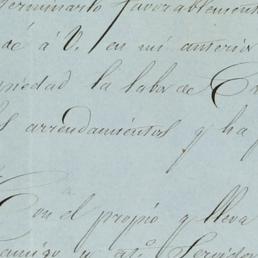 terminarlo favorablemente
de á V. en mi anterior
piedad la labor de
los arrendamientos y ha
Con el propio y lleva
amigo y atº. Servidor